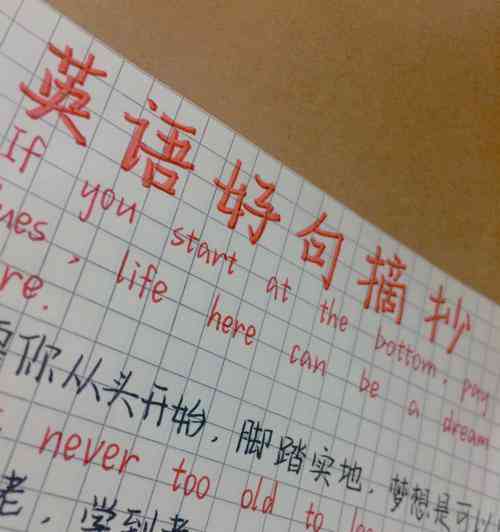 英语好句摘抄
If you start at the bottom, pay
ues, life here can be a dream
re.
你从头开始，脚踏实地，梦想是可
never too old to
老，学到老